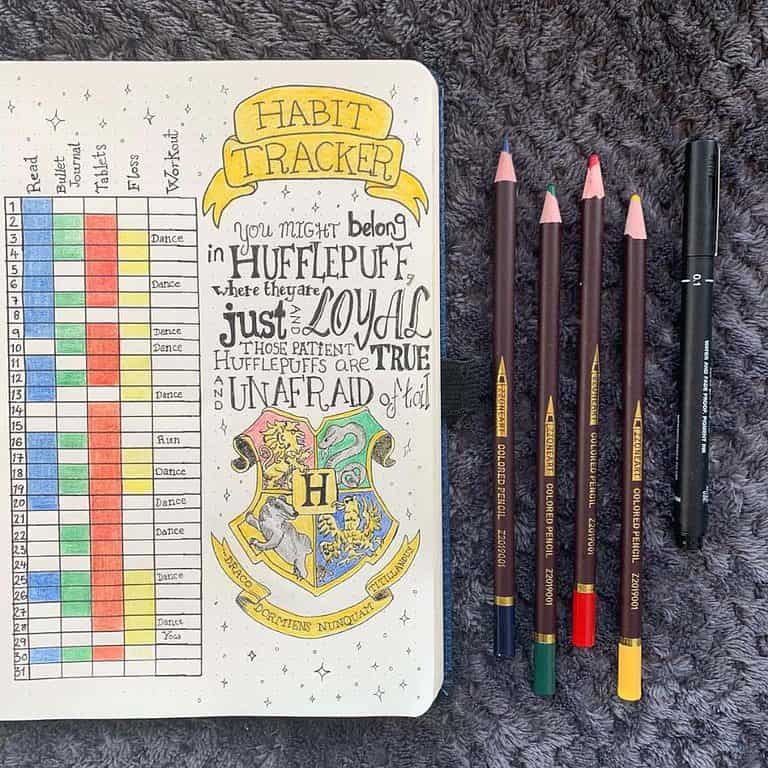 HABIT
TRACKER
Read
Bullet
Journal
Tablets
Floss
Workout
1
2
3 Dance
4
5
6 Dance
7
8
9 Dance
10 Dance
11
12
13 Dance
14
15
16 Run
17
18 Dance
19
20 Dance
21
22 Dance
23
24
25 Dance
26
27
28 Dance
29
30
31
YOU MIGHT belong
in HUFFLEPUFF,
where they are
just AND LOYAL
THOSE PATIENT
HUFFLEPUFFS are TRUE
AND UNAFRAID of toil
H
DRACO
DORMIENS NUNQUAM
TITILLANDUS
COLORED PENCIL Z2019001
COLORED PENCIL Z2019001
COLORED PENCIL Z2019001
COLORED PENCIL Z2019001
0.1
WATER AND FADE PROOF, PIGMENT INK